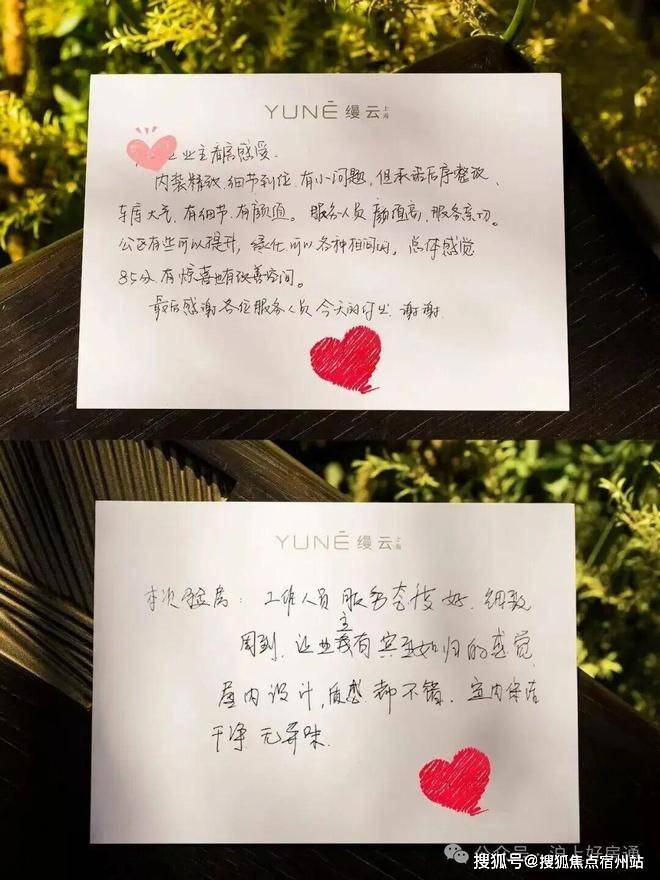 YUNÉ 缦云 上海
业主看房感受.
内装精致.细节到位.有小问题,但承诺后序整改.
车库大气,有细节.有颜值。服务人员颜值高,服务亲切。
公区有些可以提升,绿化可以各种相间的,总体感觉
85分有惊喜也有改善空间。
最后感谢各位服务人员今天的付出 谢谢
YUNÉ 缦云 上海
本次验房:工作人员服务态度好.细致
周到.让业主我有宾至如归的感觉
屋内设计,质感都不错.室内保洁
干净 无异味.
公众号·沪上好房通
搜狐号@搜狐焦点宿州站